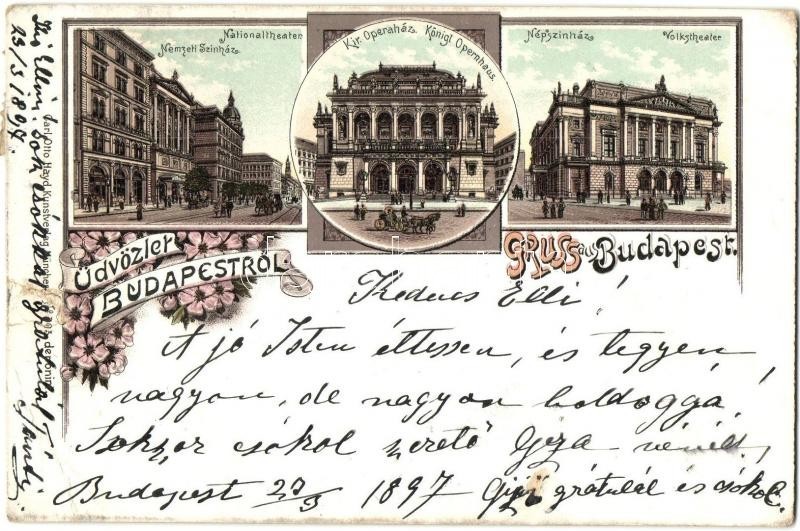 Nationaltheater
Nemzeti Szinház
Kir. Operaház. Königl. Opernhaus.
Népszinház
Volkstheater
Üdvözlet
BUDAPESTRŐL
GRUSS aus Budapest.
Kedves Elli!
A jó Isten éltessen, és tegyen
nagyon, de nagyon boldoggá,
Sokszor csókol szerető Géza
Budapest 1897 gratulál és csókol.
1897.
sok csókkal gratulál
Carl Otto Hayd Kunstverlag München